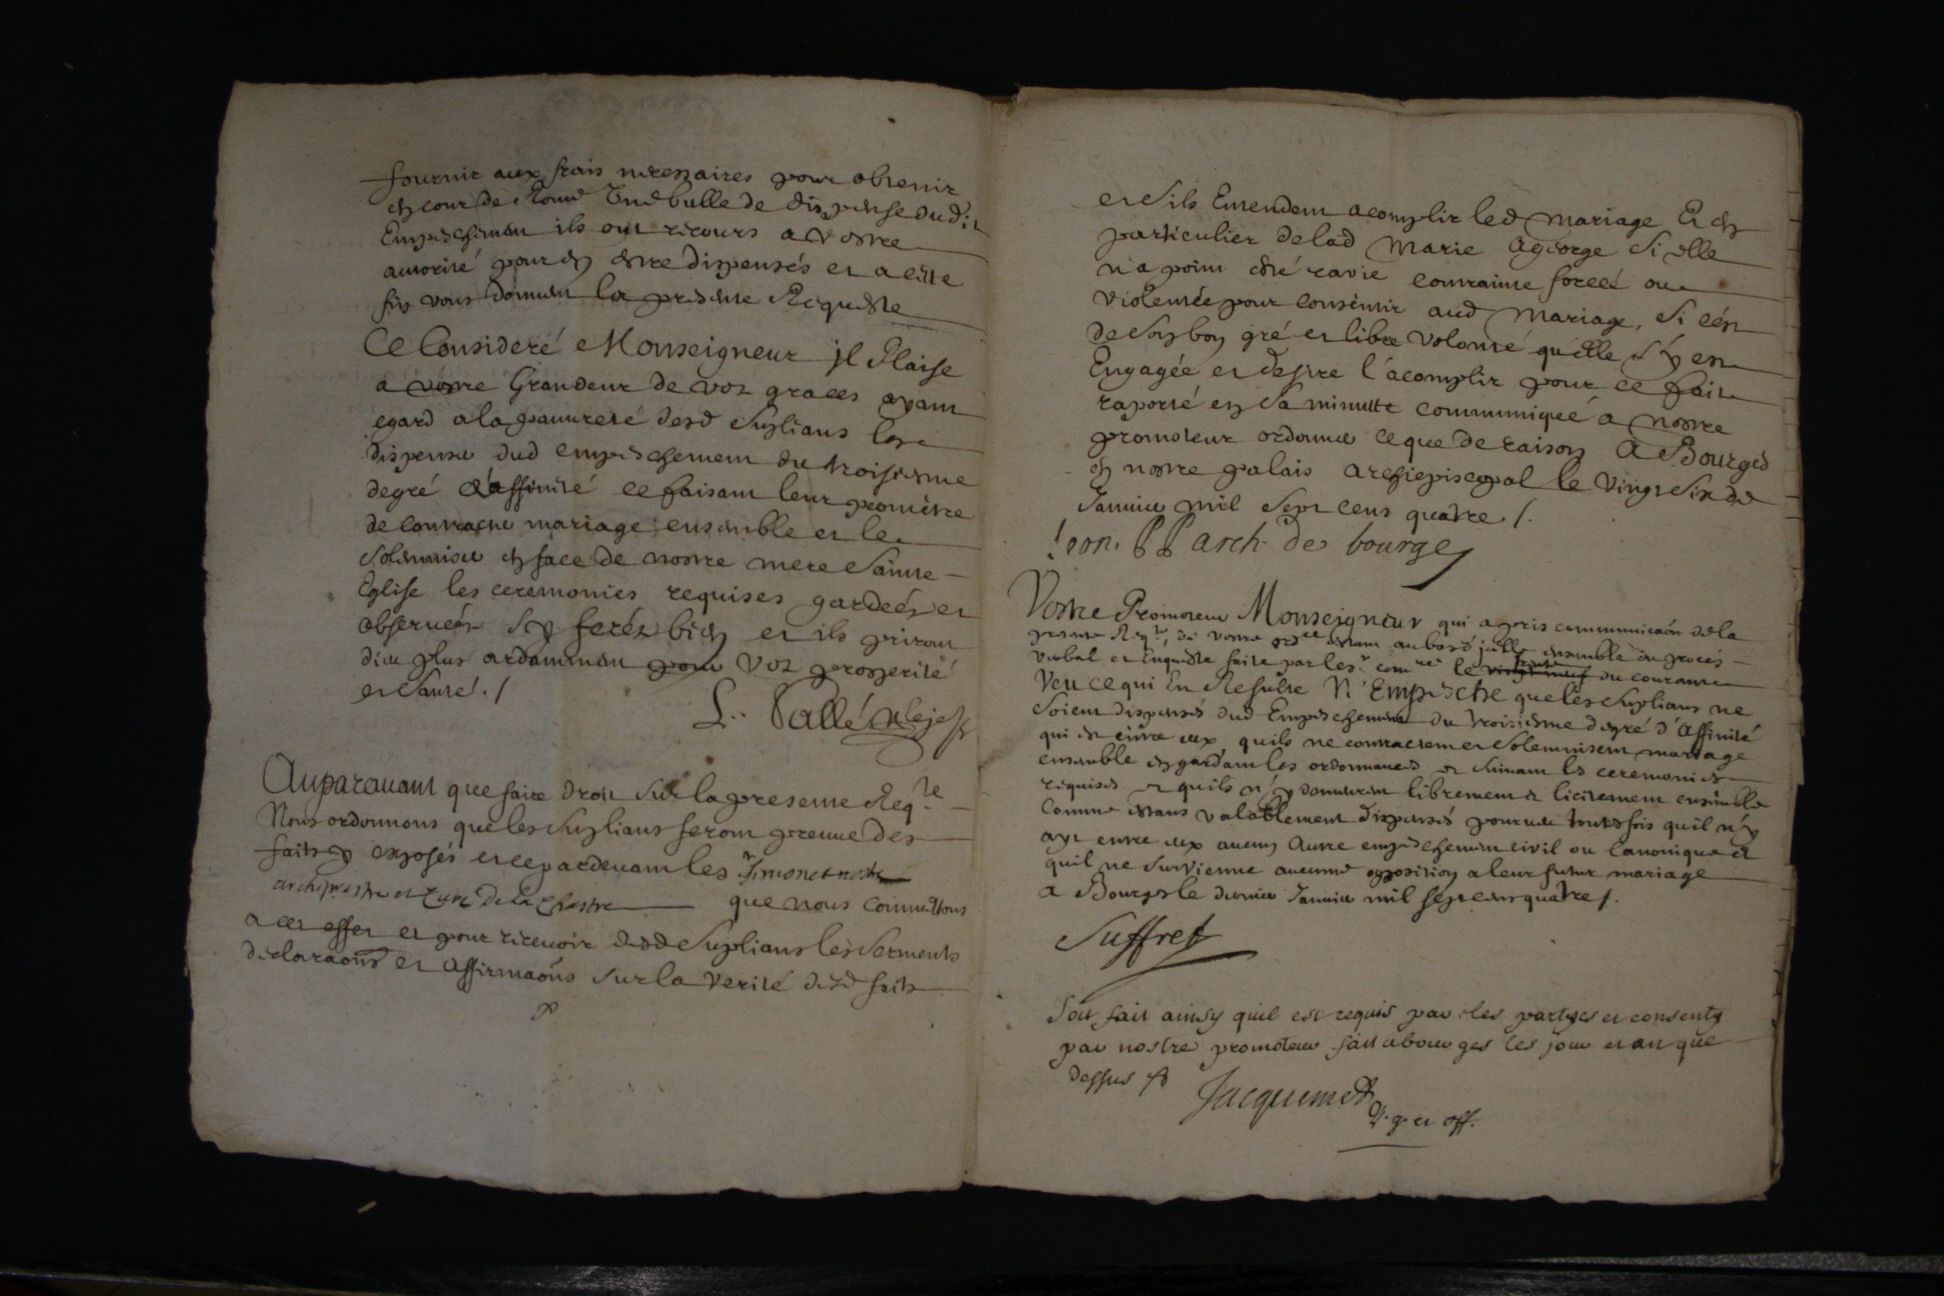 fournir aux frais necessaires pour obtenir
en cour de Rome une bulle de dispense dudit
Empeschement ils ont recours a vostre
autorité pour en estre dispensés et a cette
fin vous donnent la presente Requeste
Ce Consideré Monseigneur il Plaise
a vostre Grandeur de voz graces ayant
egard a la pauvreté desd Suplians les
dispenser dud empeschement du troisiesme
degré d'affinité ce faisant leur promettre
de contracter mariage ensemble et le
solemniser en face de nostre mere Sainte
Eglise les ceremonies requises gardeés et
observeés Sy ferés bien et ils priront
dieu plus ardamment pour voz prosperité
et Santé ./
L. Pallé
Auparauant que faire droit Sur la presente Reqte
Nous ordonnons que les Suplians feront preuue des
faits y exposés et ce pardeuant les Timonet nostre
archiprestre et Curé de la Chastre que nous Commettons
a cet effet et pour receuoir desd Suplians les Serments
declaraons et affirmaons Sur la verité desd faits
et Sils Entendent acomplir led mariage Et en
particulier de lad Marie Ageorge Si elle
n'a point esté ravie contrainte forceé ou
violentée pour consentir aud mariage, Si c'est
de Son bon gré et libre volonté qu'elle S'y est
Engagée et desire l'acomplir pour ce fait
raporté en sa minutte communiqueé a nostre
promoteur ordonner ce que de raison A Bourges
en nostre palais archiepiscopal le vingt Six de
Januier mil Sept cens quatre ./.
Leon. PP arch. de bourges
Vostre Promoteur Monseigneur qui a pris communicaon de la
presente Reqte, de vostre ordce estant au bas d'jcelle ensemble du procés
verbal et Enqueste faite par le Sr comre le vingt neuf trente du courant
Veu ce qui En Resulte N'Empesche que les Suplians ne
Soient dispensés dud Empeschement du troisiesme degré d'Affinité
qui est entre eux quils ne contractent et Solemnisent mariage
ensemble en gardant les ordonnances et Suiuant les ceremonies
requises et quils n'y demeurent librement et licitement ensemble
Comme estans valablement dispensés pourueu toutesfois quil n'y
ayt entre eux aucun autre empeschement civil ou Canonique et
quil ne Survienne aucune opposition a leur futur mariage
a Bourges le dernier Januier mil sept cens quatre ./.
Suffret
Soit fait ainsy quil est requis par les partyes et consenty
par nostre promoteur fait a bourges les jour et an que
dessus
Jacquemet
v. g. et off.